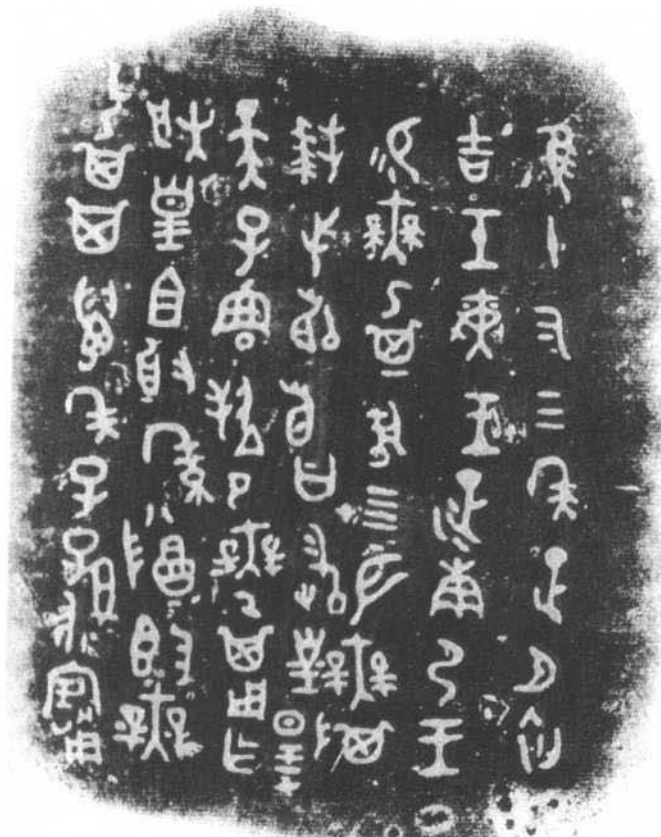 隹十又三年正月初
吉壬寅王征南尸王
易無㠱馬四匹無㠱
拜手稽首曰敢對揚
天子魯休令無㠱用
乍朕皇且釐季尊簋無
㠱其萬年子孫永寶用